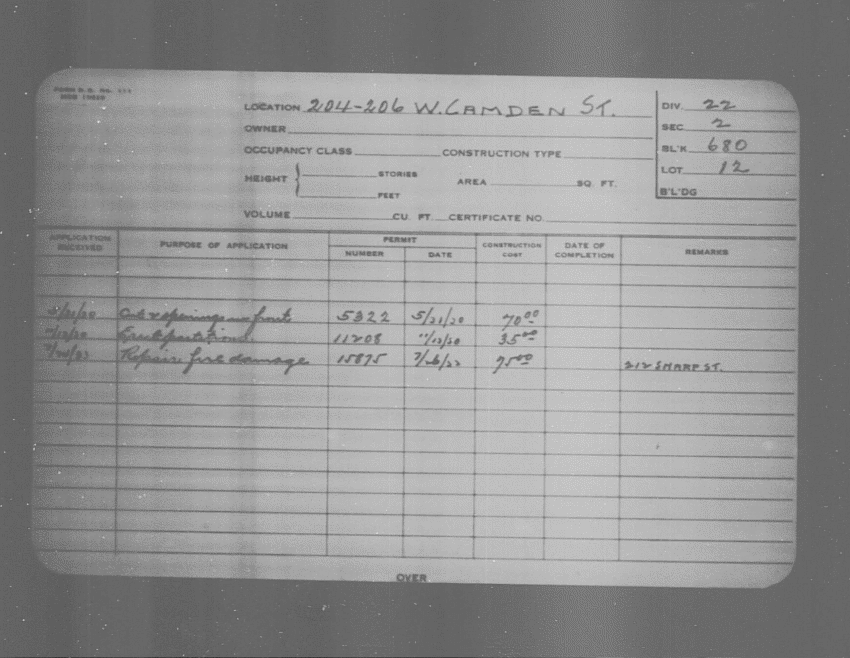 FORM B.G. No.
LOCATION 204-206 W. CAMDEN ST.
DIV. 22
OWNER
SEC 2
OCCUPANCY CLASS CONSTRUCTION TYPE
BL'K 680
HEIGHT STORIES FEET AREA SQ. FT.
LOT 12
B'L'DG
VOLUME CU. FT. CERTIFICATE NO.
APPLICATION RECEIVED PURPOSE OF APPLICATION PERMIT NUMBER DATE CONSTRUCTION COST DATE OF COMPLETION REMARKS
5/21/20 Cut 2 openings in front 5322 5/21/20 70.00
11/12/20 Erect partitions 11208 11/12/20 35.00
Repair fire damage 15875 95.00 212 SHARP ST.
OVER